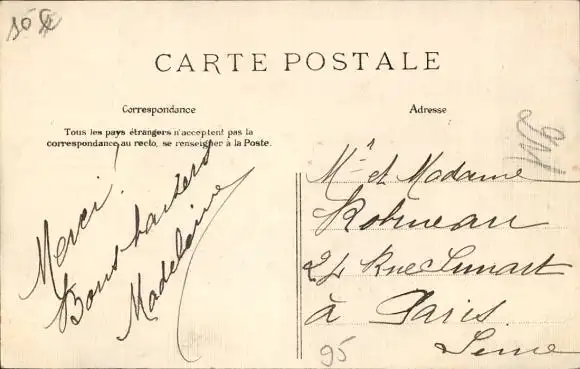 CARTE POSTALE
Correspondance
Tous les pays étrangers n'acceptent pas la
correspondance au recto, se renseigner à la Poste.
Merci!
Bons baisers
Madeleine
Adresse
Mr et Madame
Robineau
24 Rue Simart
à Paris
Seine
95